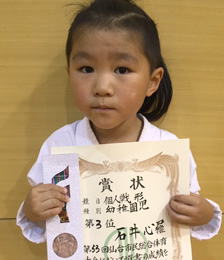 賞状
種目 個人戦 形
種別 幼稚園児
第3位
石井心羅
第55回仙台市民総合体育